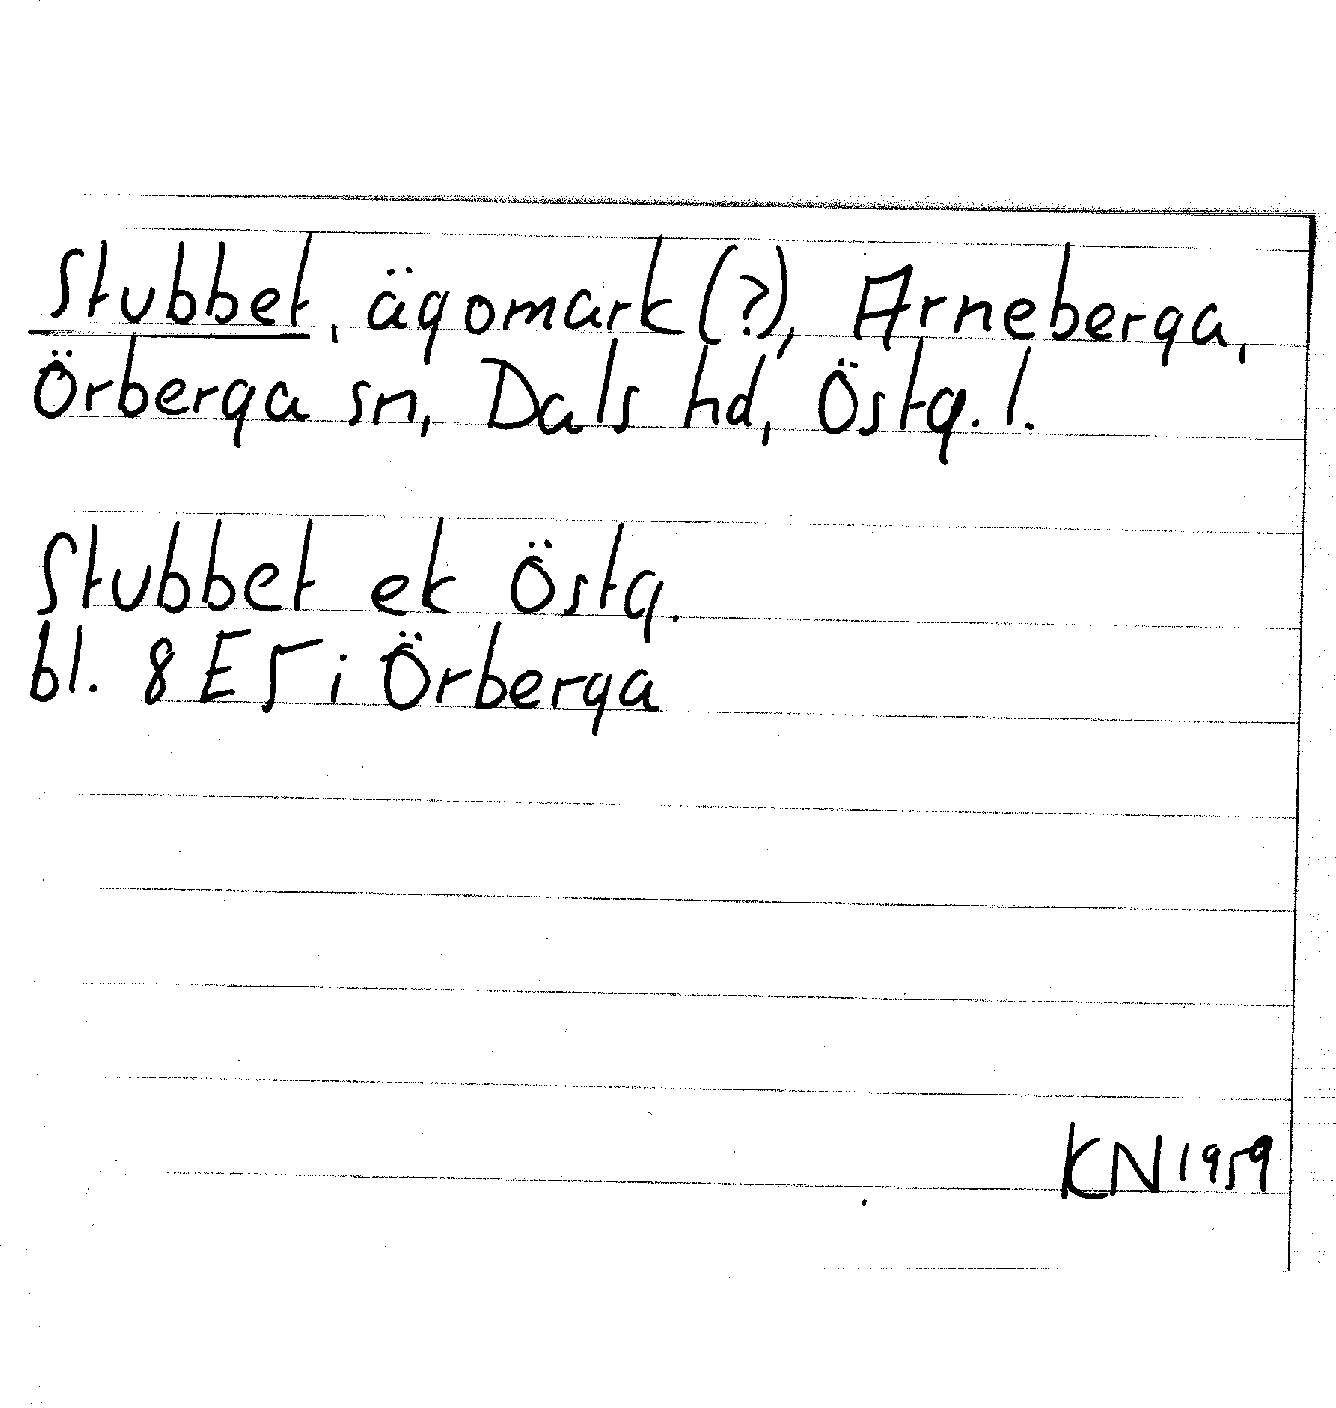 Stubbet, ägomark (?), Arneberga,
Örberga sn, Dals hd, Östg. l.
Stubbet ek Östg.
bl. 8 E5 i Örberga
KN 1959